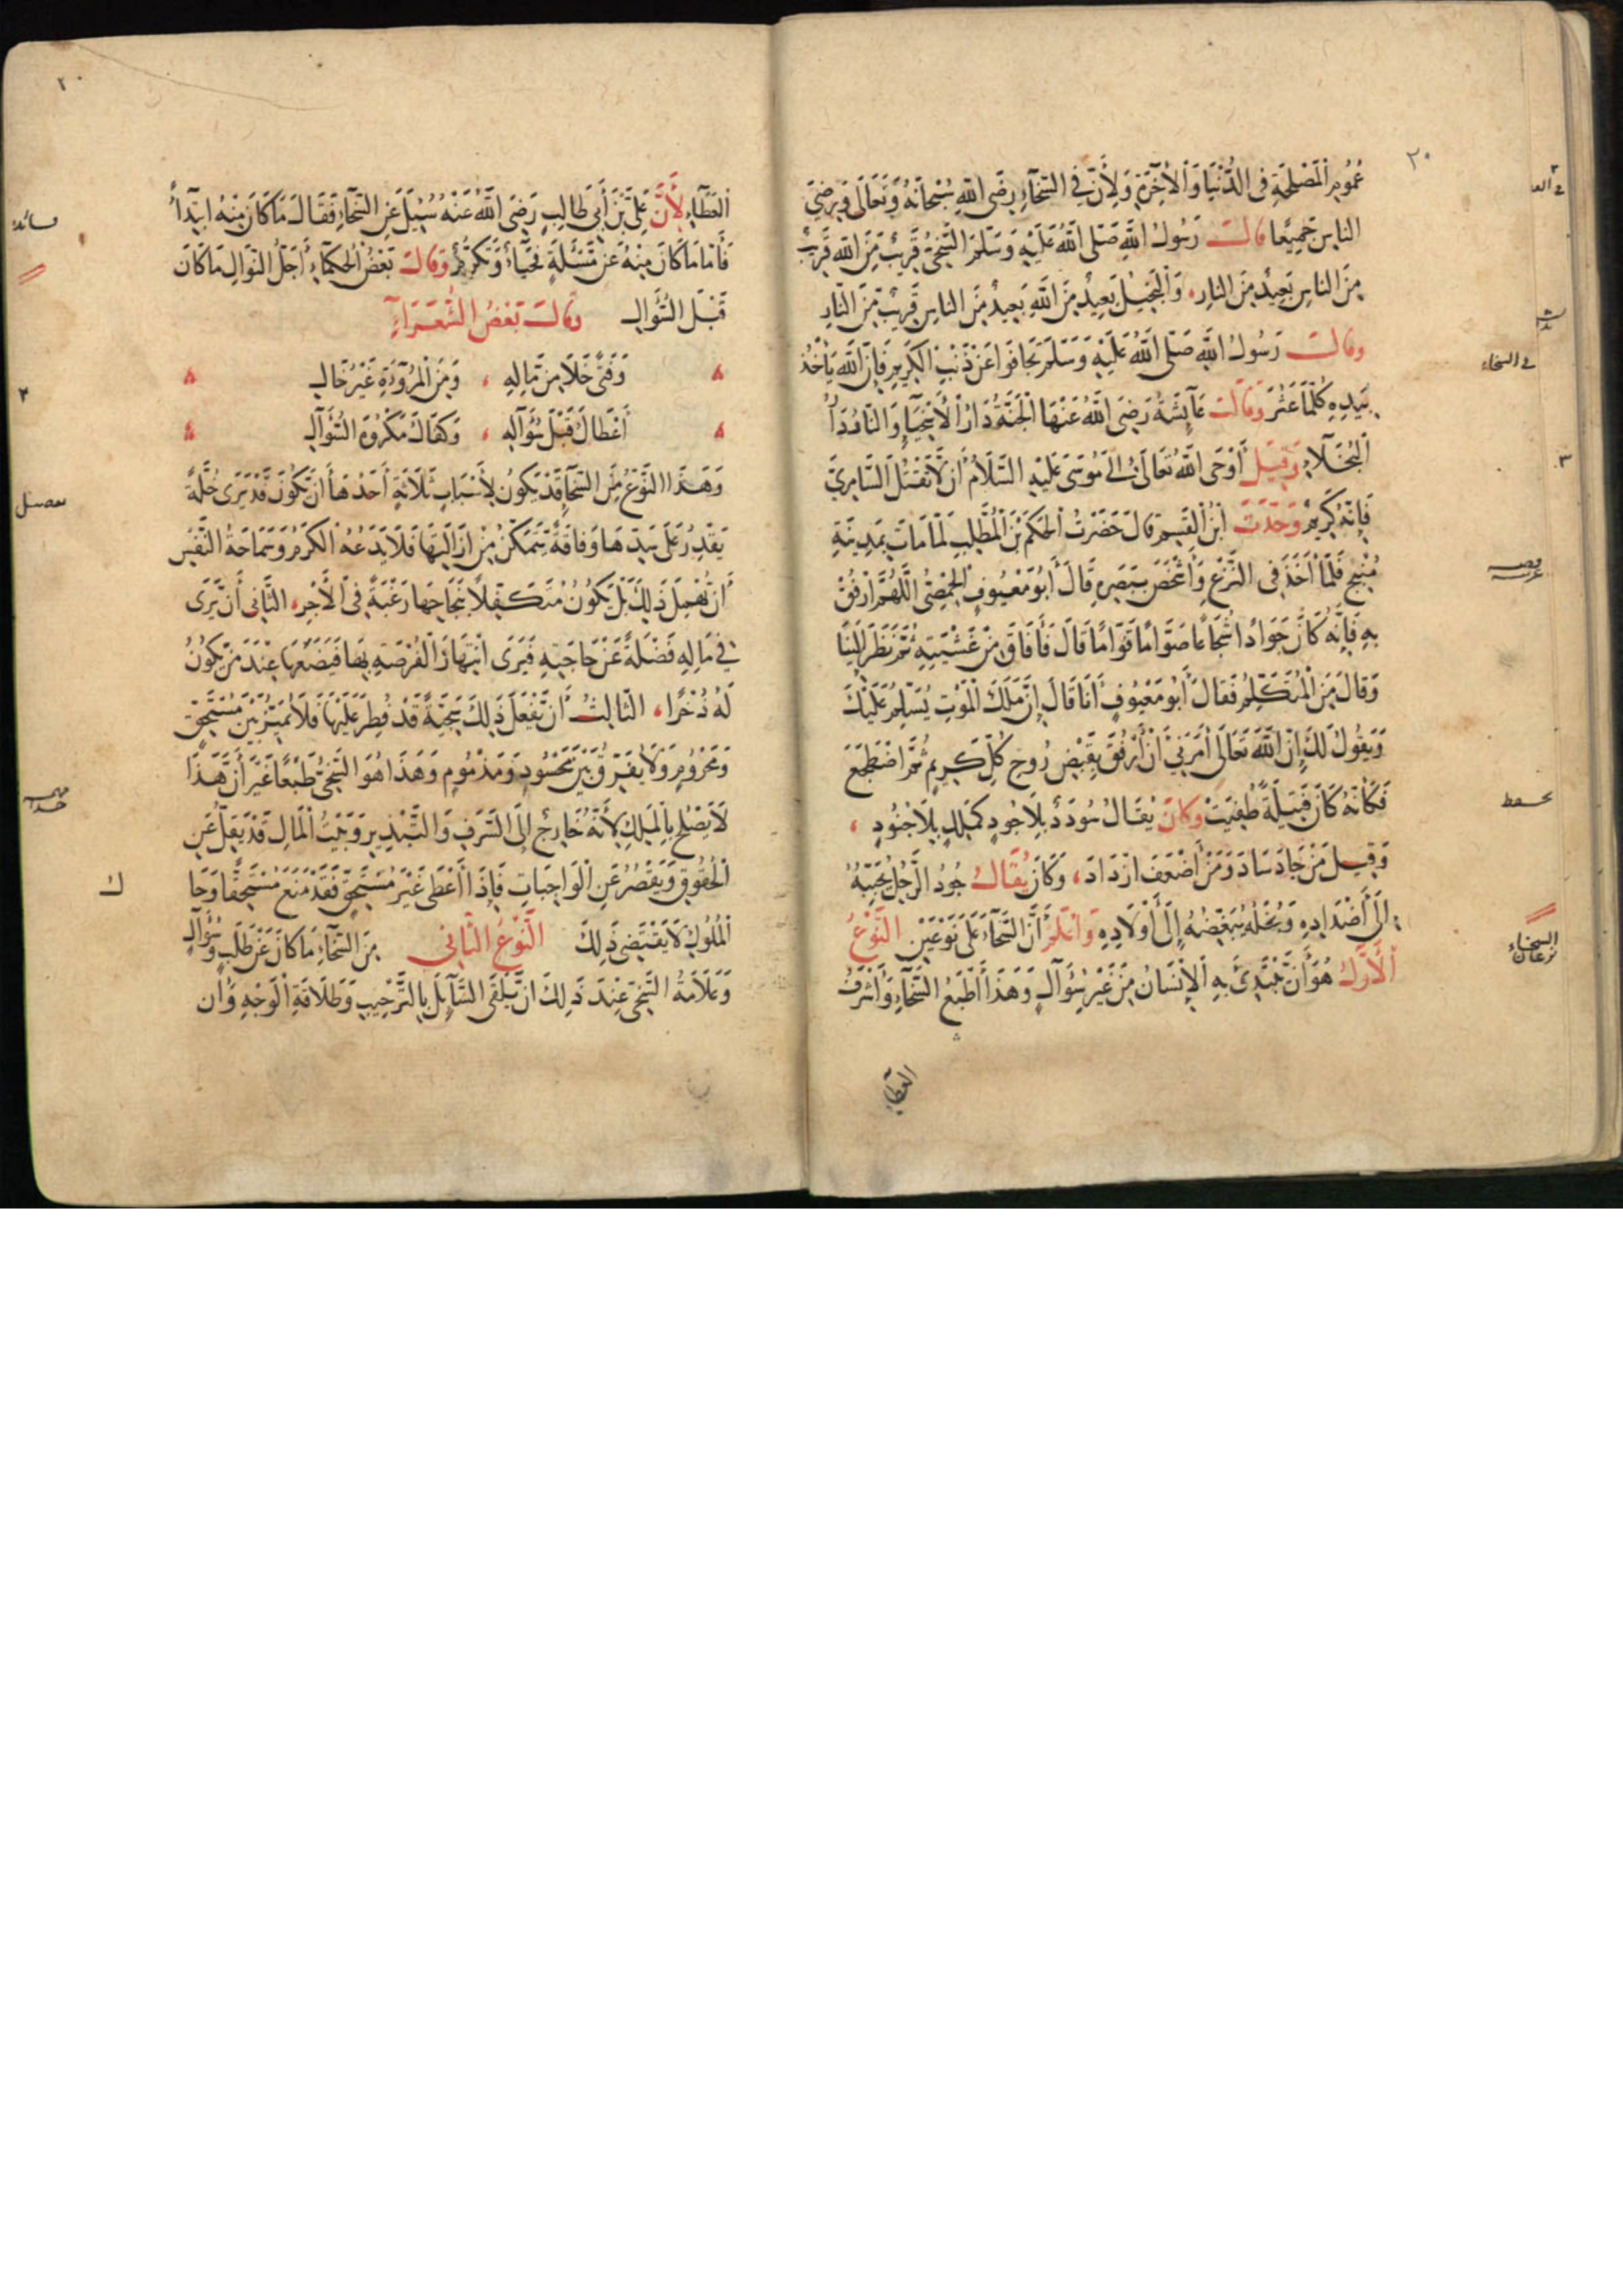 ٢٠
عُمُومِ الْمَصْلَحَةِ فِى الدُّنْيَا وَالْآخِرَةِ وَلِأَنَّ فِى السَّخَآءِ رِضَى اللّٰهِ سُبْحَانَهُ وَتَعَالَى وَرِضَى
النَّاسِ جَمِيعًا قَالَ رَسُولُ اللّٰهِ صَلَّى اللّٰهُ عَلَيْهِ وَسَلَّمَ السَّخِىُّ قَرِيبٌ مِنَ اللّٰهِ قَرِيبٌ
مِنَ النَّاسِ بَعِيدٌ مِنَ النَّارِ، وَالْبَخِيلُ بَعِيدٌ مِنَ اللّٰهِ بَعِيدٌ مِنَ النَّاسِ قَرِيبٌ مِنَ النَّارِ
وَقَالَ رَسُولُ اللّٰهِ صَلَّى اللّٰهُ عَلَيْهِ وَسَلَّمَ تَجَافَوْا عَنْ ذَنْبِ الْكَرِيمِ فَإِنَّ اللّٰهَ يَأْخُذُ
فى السخاء
بِيَدِهِ كُلَّمَا عَثَرَ وَقَالَتْ عَآئِشَةُ رَضِىَ اللّٰهُ عَنْهَا الْجَنَّةُ دَارُ الْأَسْخِيَآءِ وَالنَّارُ دَارُ
الْبُخَلَآءِ وَقِيلَ أَوْحَى اللّٰهُ تَعَالَى إِلَى مُوسَى عَلَيْهِ السَّلَامُ أَنْ لَا تَقْتُلِ السَّامِرِىَّ
٣
فَإِنَّهُ كَرِيمٌ وَحَدَّثَ ابْنُ الْقَسِيمِ قَالَ حَضَرْتُ الْحَكَمَ بْنَ الْمُطَّلِبِ لَمَّا مَاتَ بِمَدِينَةِ
مَنْبِجَ فَلَمَّا أَخَذَ فِى النَّزْعِ وَأَشْخَصَ بِبَصَرِهِ قَالَ أَبُو مَعْيُوفٍ الْحِمْصِىُّ اللّٰهُمَّ ارْفُقْ
بِهِ فَإِنَّهُ كَانَ جَوَادًا شُجَاعًا صَوَّامًا قَوَّامًا قَالَ فَأَفَاقَ مِنْ غَشْيَتِهِ ثُمَّ نَظَرَ إِلَيْنَا
وَقَالَ مَنِ الْمُتَكَلِّمُ فَقَالَ أَبُو مَعْيُوفٍ أَنَا قَالَ إِنَّ مَلَكَ الْمَوْتِ يُسَلِّمُ عَلَيْكَ
وَيَقُولُ لَكَ إِنَّ اللّٰهَ تَعَالَى أَمَرَنِى أَنْ أَرْفُقَ بِقَبْضِ رُوحِ كُلِّ كَرِيمٍ ثُمَّ اضْطَجَعَ
فَكَأَنَّهُ كَانَ فَتِيلَةً طُفِيَتْ وَكَانَ يُقَالُ سُودَدٌ بِلَا جُودٍ كَمَلِكٍ بِلَا جُنُودٍ،
وَقِيلَ مَنْ جَادَ سَادَ وَمَنْ أَضْعَفَ ازْدَادَ، وَكَانَ يُقَالُ جُودُ الرَّجُلِ يُحَبِّبُهُ
إِلَى أَضْدَادِهِ وَبُخْلُهُ يُبَغِّضُهُ إِلَى أَوْلَادِهِ وَاعْلَمْ أَنَّ السَّخَآءَ عَلَى نَوْعَيْنِ النَّوْعُ
السخاء نوعان
الْأَوَّلُ هُوَ أَنْ يَبْتَدِىَ بِهِ الْإِنْسَانُ مِنْ غَيْرِ سُؤَالٍ وَهَذَا أَطْبَعُ السَّخَآءِ وَأَشْرَفُ
العطآء
٢٠
الْعَطَآءِ لِأَنَّ عَلِىَّ بْنَ أَبِى طَالِبٍ رَضِىَ اللّٰهُ عَنْهُ سُئِلَ عَنِ السَّخَآءِ فَقَالَ مَا كَانَ مِنْهُ ابْتِدَآءً
فَأَمَّا مَا كَانَ مِنْهُ عَنْ مَسْئَلَةٍ فَحَيَآءٌ وَتَكَرُّمٌ وَقَالَ بَعْضُ الْحُكَمَآءِ أَجَلُّ النَّوَالِ مَا كَانَ
قَبْلَ السُّؤَالِ وَقَالَ بَعْضُ الشُّعَرَآءِ
وَفَتًى خَلَا مِنْ مَالِهِ ، وَمِنَ الْمُرُوءَةِ غَيْرُ خَالِ
٢
أَعْطَاكَ قَبْلَ سُؤَالِهِ ، وَكَفَاكَ مَكْرُوهَ السُّؤَالِ
وَهَذَا النَّوْعُ مِنَ السَّخَآءِ قَدْ يَكُونُ لِأَسْبَابٍ ثَلَاثَةٍ أَحَدُهَا أَنْ يَكُونَ قَدْ يَرَى خَلَّةً
يَقْدِرُ عَلَى سَدِّهَا وَفَاقَةً يَتَمَكَّنُ مِنْ إِزَالَتِهَا فَلَا يَدَعُهُ الْكَرَمُ وَسَمَاحَةُ النَّفْسِ
أَنْ يُهْمِلَ ذَلِكَ بَلْ يَكُونُ مُتَكَفِّلًا بِنَجَاحِهَا رَغْبَةً فِى الْأَجْرِ، الثَّانِى أَنْ يَرَى
فِى مَالِهِ فَضْلَةً عَنْ حَاجَتِهِ فَيَرَى انْتِهَازَ الْفُرْصَةِ بِهَا فَيَضَعُهَا عِنْدَ مَنْ يَكُونُ
لَهُ ذُخْرًا، الثَّالِثُ أَنْ يَفْعَلَ ذَلِكَ سَجِيَّةً قَدْ فُطِرَ عَلَيْهَا فَلَا يُمَيِّزُ بَيْنَ مُسْتَحِقٍّ
وَمَحْرُومٍ وَلَا يُفَرِّقُ بَيْنَ مَحْسُودٍ وَمَذْمُومٍ وَهَذَا هُوَ السَّخِىُّ طَبْعًا غَيْرَ أَنَّ هَذَا
لَا يَصْلُحُ بِالْمَلِكِ لِأَنَّهُ خَارِجٌ إِلَى السَّرَفِ وَالتَّبْذِيرِ وَبَيْتُ الْمَالِ قَدْ يَقِلُّ عَنِ
الْحُقُوقِ وَيَقْصُرُ عَنِ الْوَاجِبَاتِ فَإِذَا أَعْطَى غَيْرَ مُسْتَحِقٍّ فَقَدْ مَنَعَ مُسْتَحِقًّا وَحَا
الْمُلُوكِ لَا يَقْتَضِى ذَلِكَ النَّوْعُ الثَّانِى مِنَ السَّخَآءِ مَا كَانَ عَنْ طَلَبٍ وَسُؤَالٍ
وَعَلَامَةُ السَّخِىِّ عِنْدَ ذَلِكَ أَنْ يَلْقَى السَّآئِلَ بِالتَّرْحِيبِ وَطَلَاقَةِ الْوَجْهِ وَأَنْ